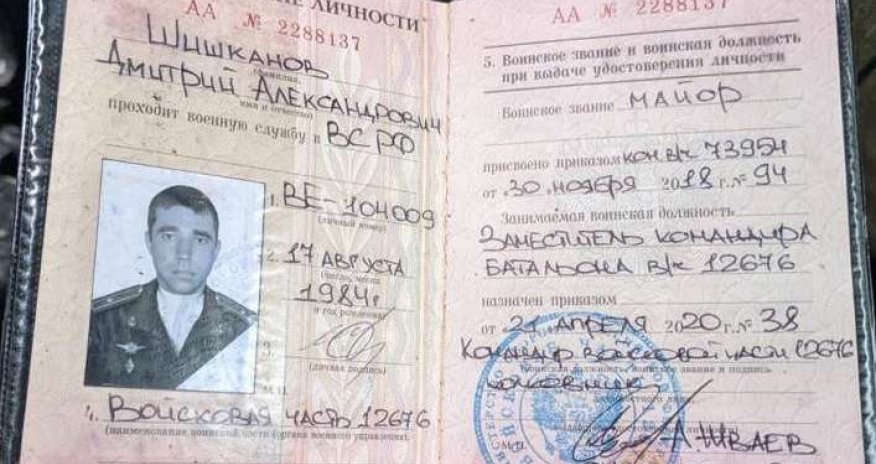 ЛИЧНОСТИ
АА № 2288137
Шишканов
фамилия,
Дмитрий Александрович
имя и отчество
проходит военную службу в ВС РФ
1. ВЕ-104009
(личный номер)
2. 17 августа
(число, месяц
1984г
и год рождения)
3.
(личная подпись)
М.П.
4. Войсковая часть 12676
(наименование воинской части (органа военного управления).
АА № 2288137
5. Воинское звание и воинская должность
при выдаче удостоверения личности
Воинское звание майор
присвоено приказом ком в/ч 73954
от 30 ноября 2018 г. № 94
Занимаемая воинская должность
Заместитель командира
батальона в/ч 12676
назначен приказом
от 21 апреля 2020 г. № 38
Командир войсковой части 12676
воинское звание и подпись
полковник
должностного лица
М.П.
А. Шваев